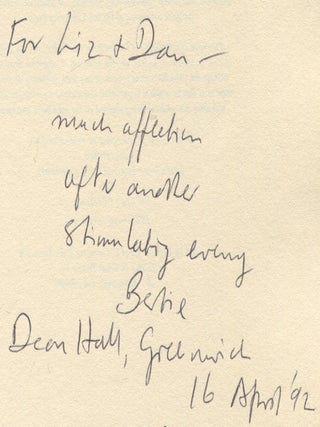 For Liz & Dan –
much affection
after another
stimulating evening
Bertie
Dean Hall, Greenwich
16 April '92